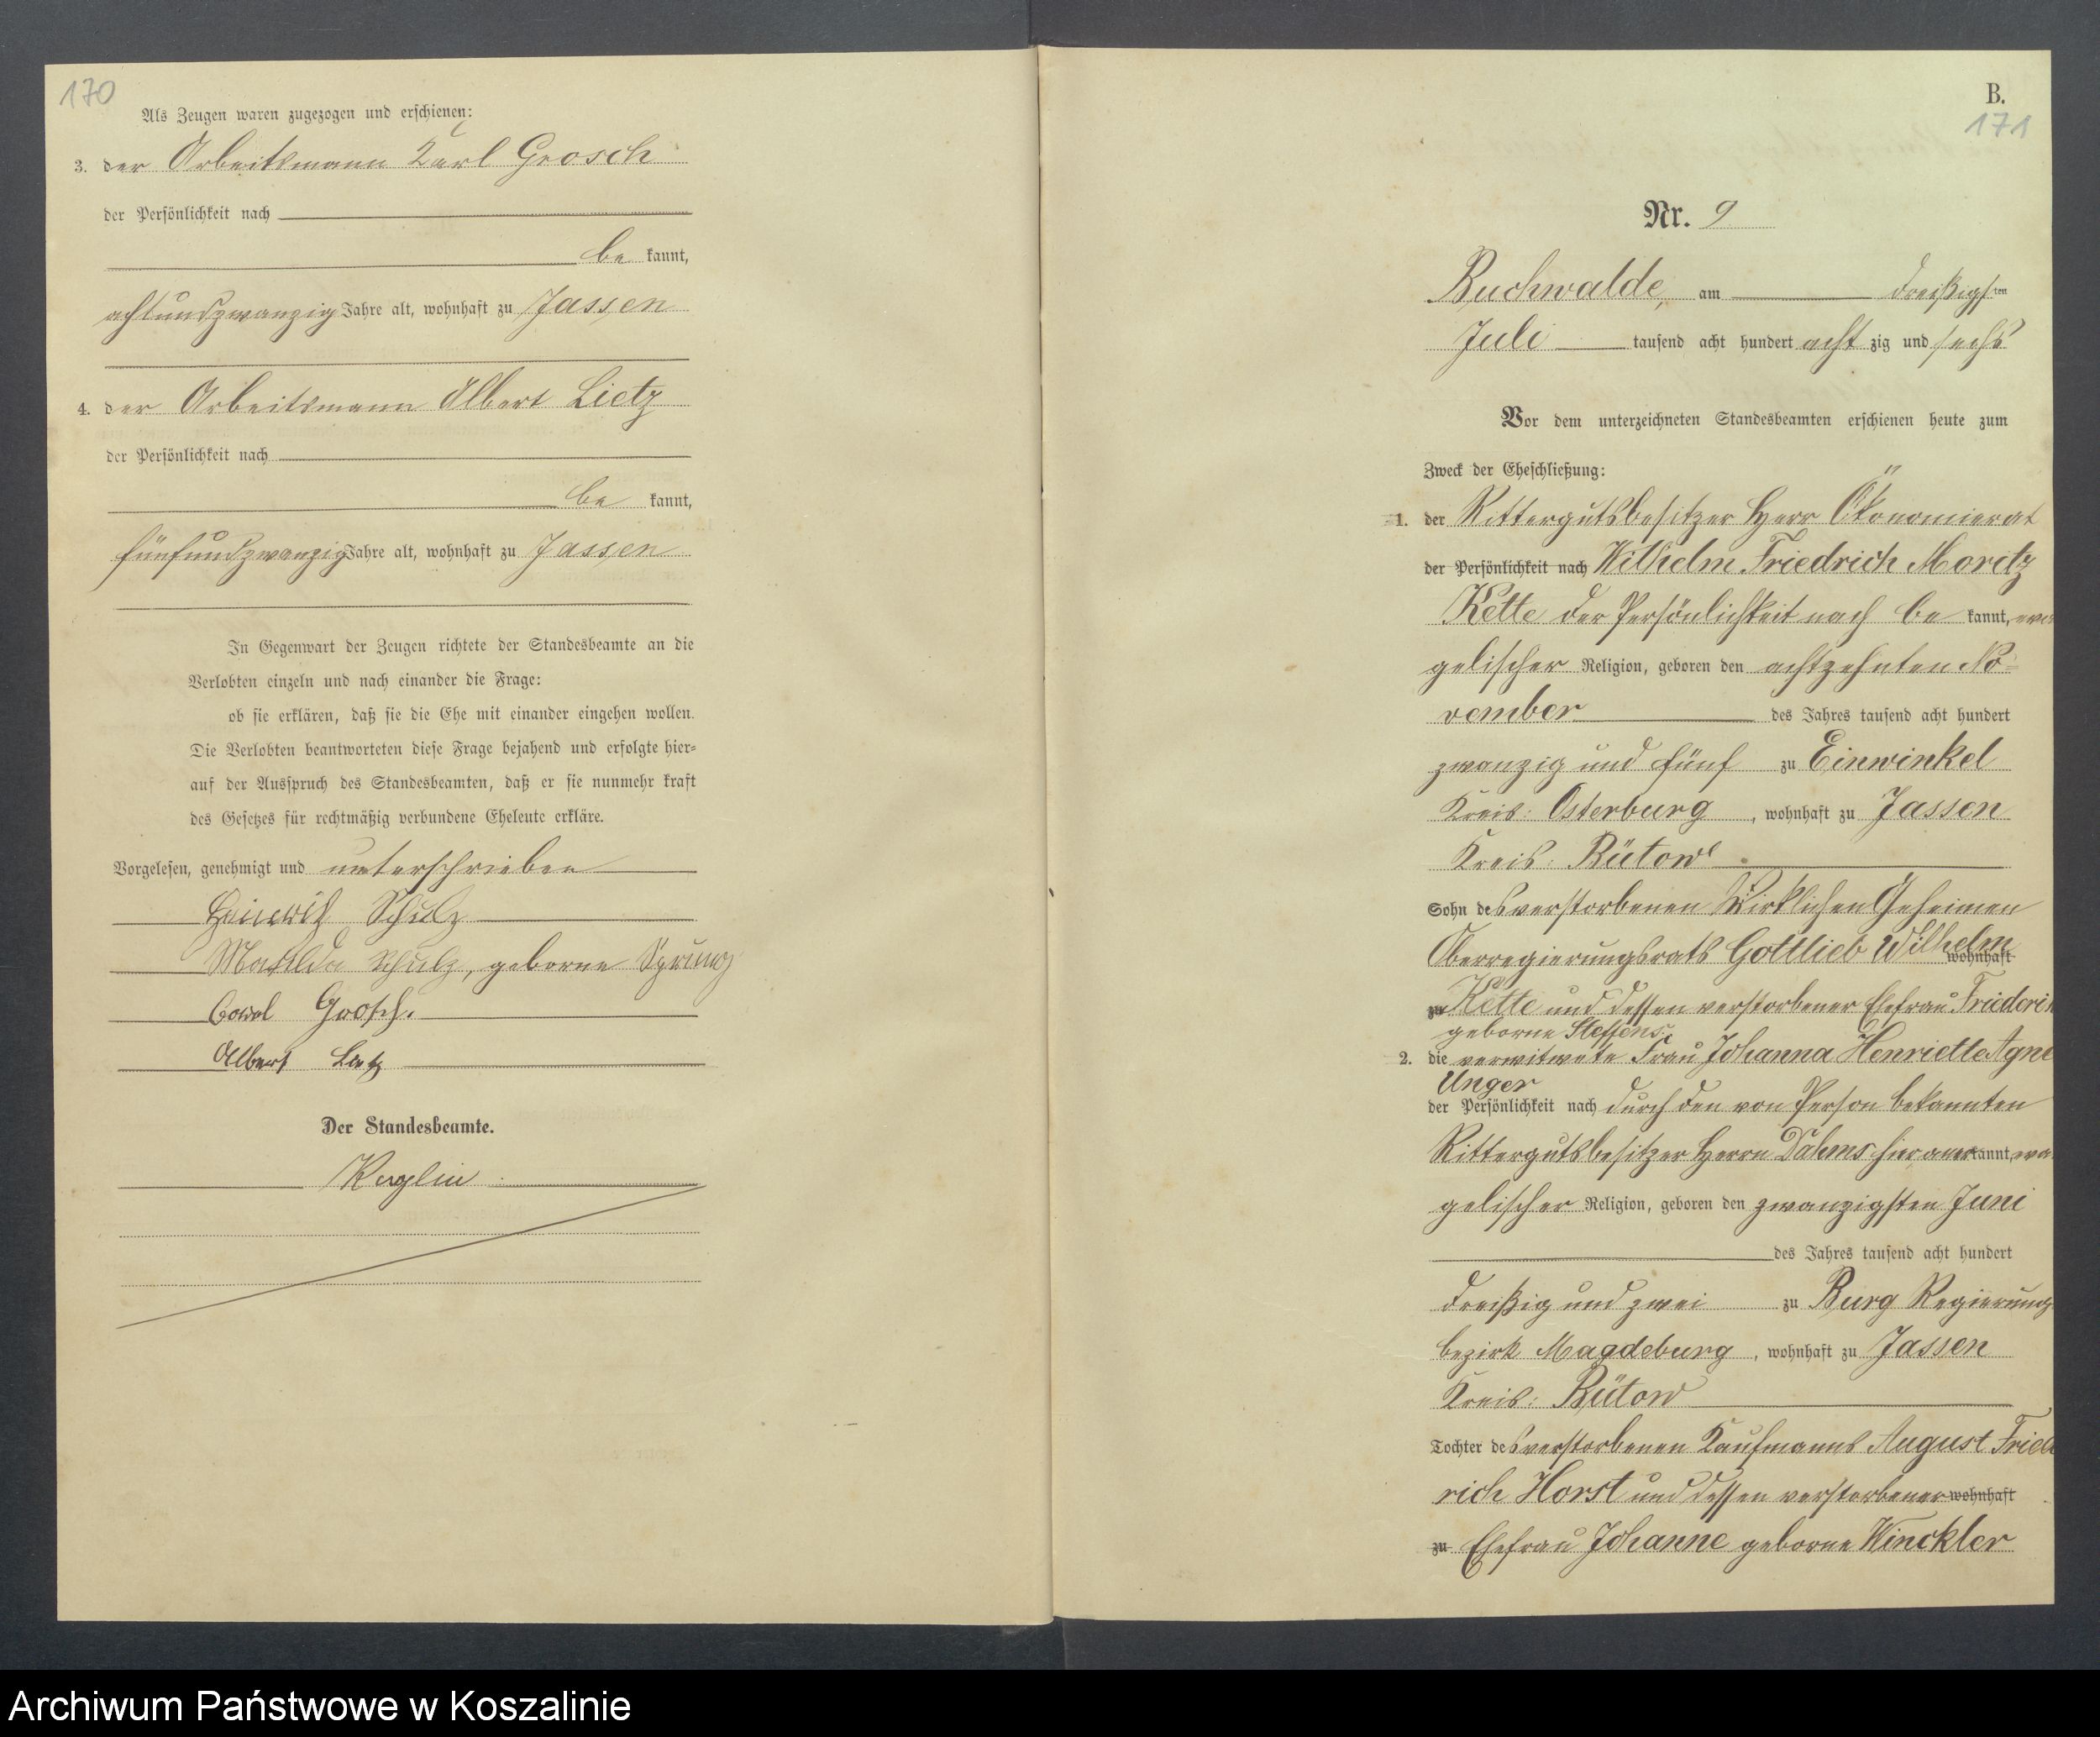 170
Als Zeugen waren zugezogen und erschienen:
3. der Arbeitsmann Karl Grosch
der Persönlichkeit nach
be kannt,
achtundzwanzig Jahre alt, wohnhaft zu Jassen
4. der Arbeitsmann Albert Lietz
der Persönlichkeit nach
be kannt,
fünfundzwanzig Jahre alt, wohnhaft zu Jassen
In Gegenwart der Zeugen richtete der Standesbeamte an die
Verlobten einzeln und nach einander die Frage:
ob sie erklären, daß sie die Ehe mit einander eingehen wollen.
Die Verlobten beantworteten diese Frage bejahend und erfolgte hier=
auf der Ausspruch des Standesbeamten, daß er sie nunmehr kraft
des Gesetzes für rechtmäßig verbundene Eheleute erkläre.
Vorgelesen, genehmigt und unterschrieben
Heinrich Schulz
Mathilda Schulz, geborne Sprung
Carl Grosch.
Albert
Der Standesbeamte.
B.
171
Nr. 9
Buchwalde, am dreißigsten
Juli tausend acht hundert acht zig und sechs
Vor dem unterzeichneten Standesbeamten erschienen heute zum
Zweck der Eheschließung:
1. der Rittergutsbesitzer Herr Ökonomierat
der Persönlichkeit nach Wilhelm Friedrich Moritz
Kette der Persönlichkeit nach be kannt, evan
gelischer Religion, geboren den achtzehnten No=
vember des Jahres tausend acht hundert
zwanzig und fünf zu Einwinkel
Kreis: Osterburg, wohnhaft zu Jassen
Kreis: Bütow
Sohn des verstorbenen Wirklichen Geheimen
Oberregierungsrats Gottlieb Wilhelm wohnhaft
zu Kette und dessen verstorbener Ehefrau Friederik
geborne Steffens
2. die verwitwete Frau Johanna Henriette Agne
Unger
der Persönlichkeit nach durch den von Person bekannten
Rittergutsbesitzer Herrn Dahms hier anerkannt, eva
gelischer Religion, geboren den zwanzigsten Juni
des Jahres tausend acht hundert
dreißig und zwei zu Burg Regierungs
bezirk Magdeburg, wohnhaft zu Jassen
Kreis: Bütow
Tochter des verstorbenen Kaufmanns August Fried
rich Horst und dessen verstorbener wohnhaft
zu Ehefrau Johanne geborne Winckler
Archiwum Państwowe w Koszalinie